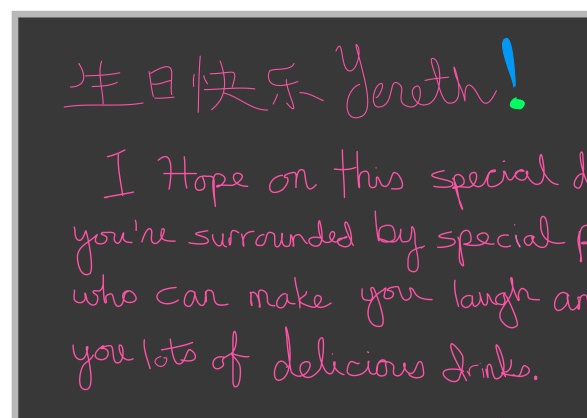 生日快乐 Yereth!
I Hope on this special d
you're surrounded by special p
who can make you laugh an
you lots of delicious drinks.